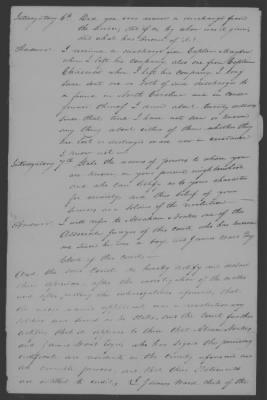 Interrogatory 6th Did you ever receive a discharge from
the Service, and if so by whom was it given,
and what has become of it?
Answer I received a discharge from Captain
when I left his company also one from Captain
when I left his company I long
since lost one Both of were discharges
a friend in North Carolina
Since that time I have not seen or known
any thing about either of them whether they
are lost or destroyed or are now in existence
I know not
Interrogatory 7th State the names of persons to whom you
are known in your present neighborhood
and who can testify as to your character
for veracity, and their belief of your
Services as a Soldier of the revolution
Answer I will refer to Abraham one of the
Associate Judges of this court, who has known
me since he was a boy, and James Ward Esq
Clerk of this court
And the said Court do hereby certify and declare
their opinion, after the investigation of the matter
and after putting the interrogatories aforesaid, that
the above named applicant was a revolutionary
soldier and served as he states, and the Court further
certifies that it appears to them that Abraham
and James Ward Esqrs who has signed the preceding
certificate are residents in the County aforesaid and
are credible persons, and that their Statements
are entitled to credit, I James Ward clerk of the